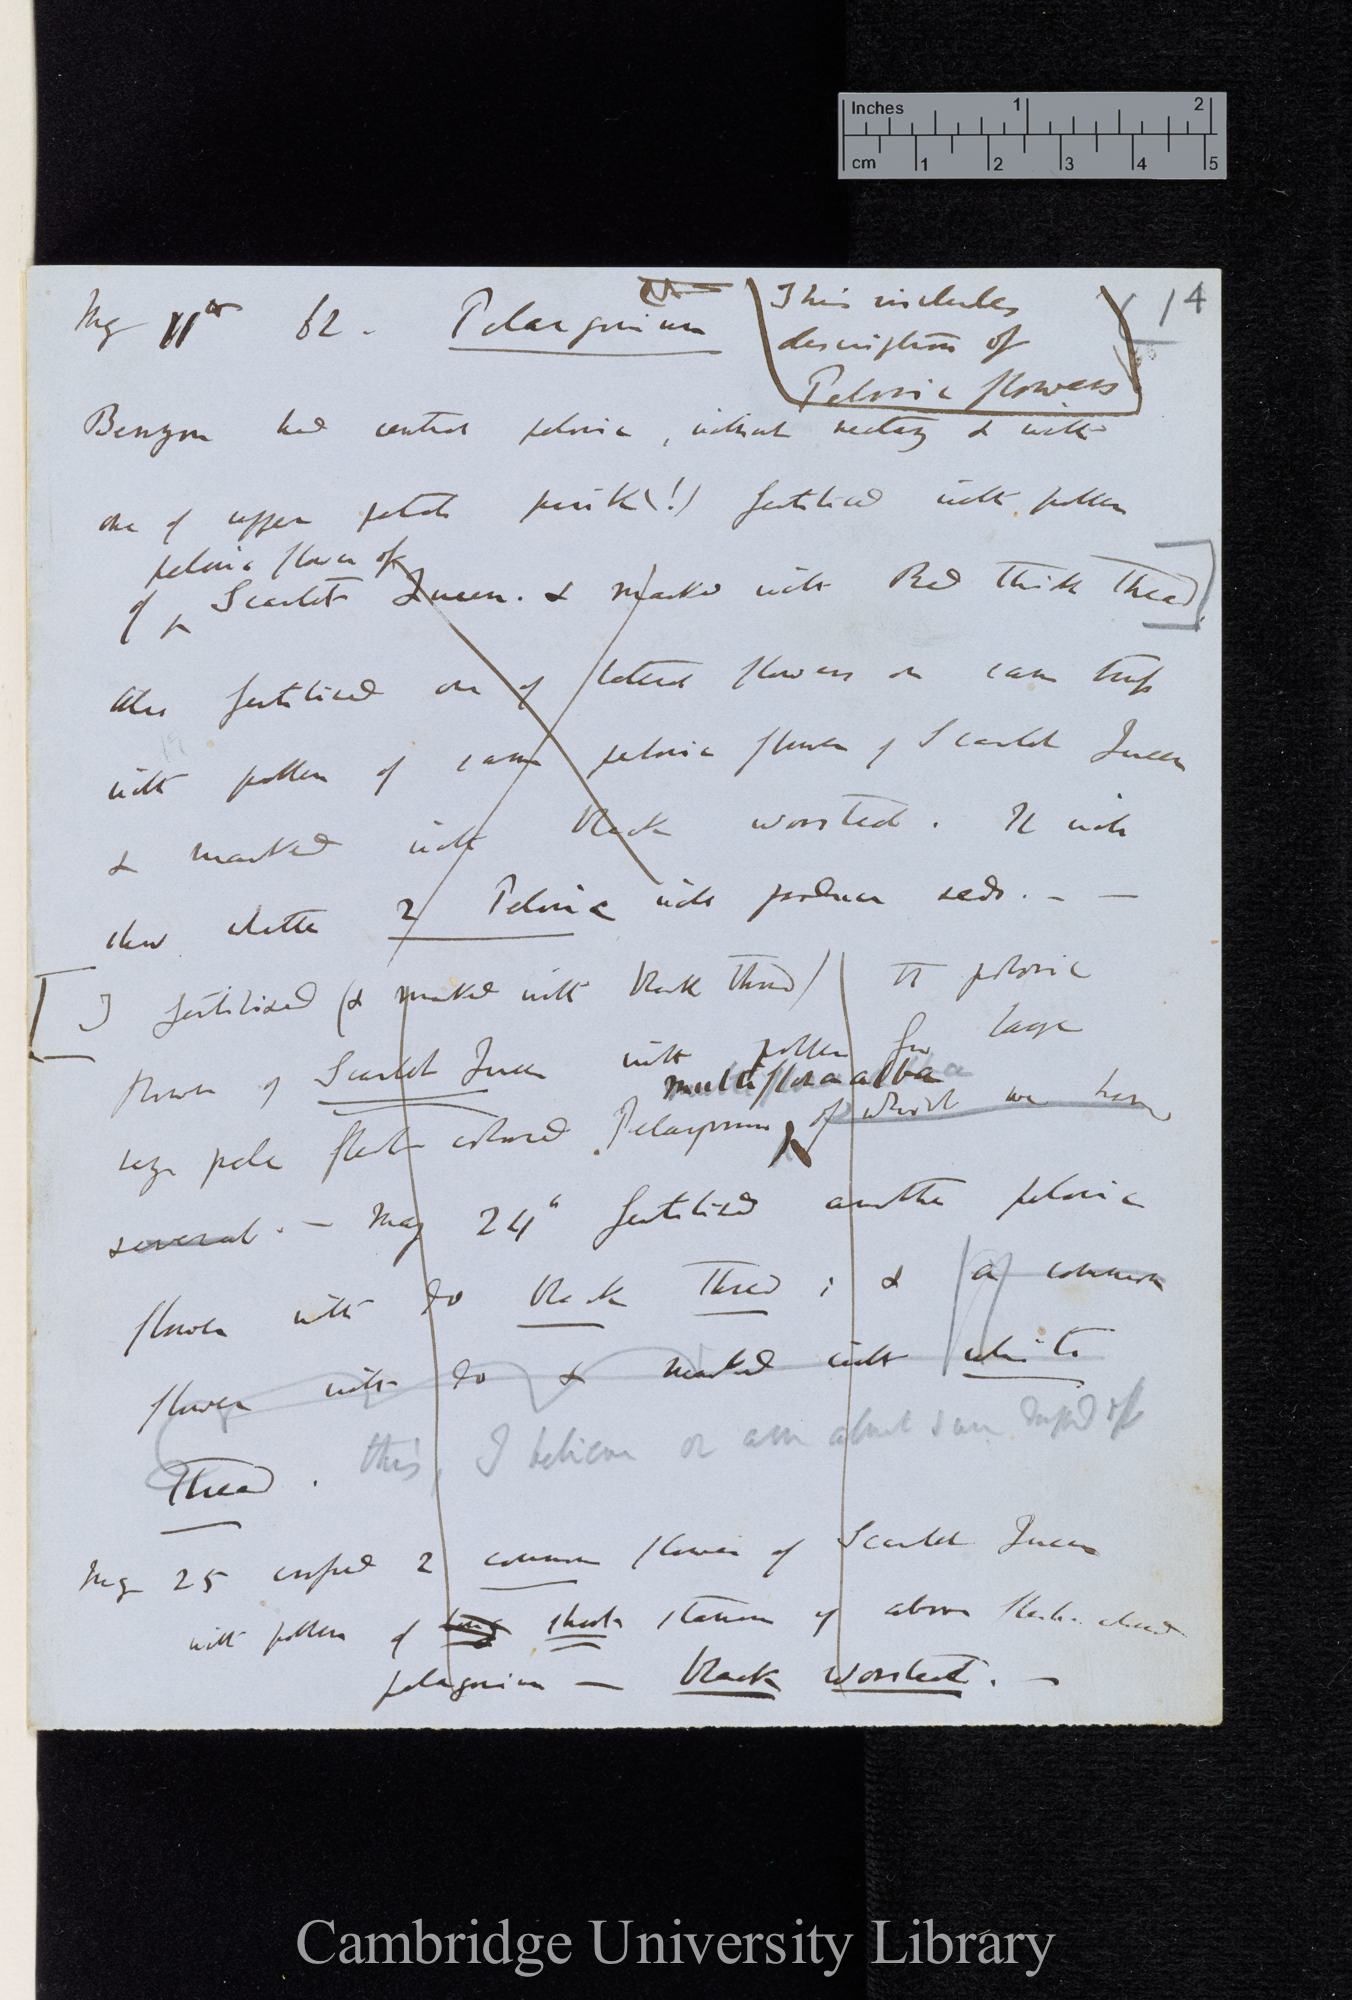 Inches 1 2
cm 1 2 3 4 5
May 11th 62. Pelargonium
This includes
description of
Peloric flowers
(1
4
Benyon had central peloric, without nectary & with
one of upper petals pink (!) fertilised with pollen
peloric flower of
of ^ Scarlet Queen. & marked with Red thick Thread
Also fertilised one of lateral flowers on same truss
with pollen of same peloric flower of Scarlet Queen
& marked with black worsted. It will
shew whether 2 Peloric will produce seeds. - —
[I fertilised (& marked with black thread) the peloric
flower of Scarlet Queen with pollen from large
multiflora alba
very pale flesh coloured Pelargonium, of which we have
several. — May 24th fertilised another peloric
flower with do black Thread; & (a) common
flower with do & marked with white
Thread. this, I believe or am almost sure dropped off
May 25 crossed 2 common flowers of Scarlet Queen
with pollen of long short stamen of above flesh-coloured
pelargonium — black worsted. —
Cambridge University Library